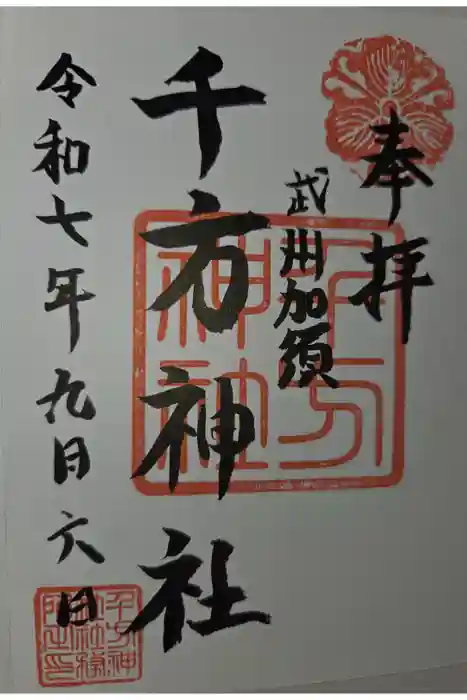 奉拝
武州加須
千方神社
令和七年九月六日
千方神社